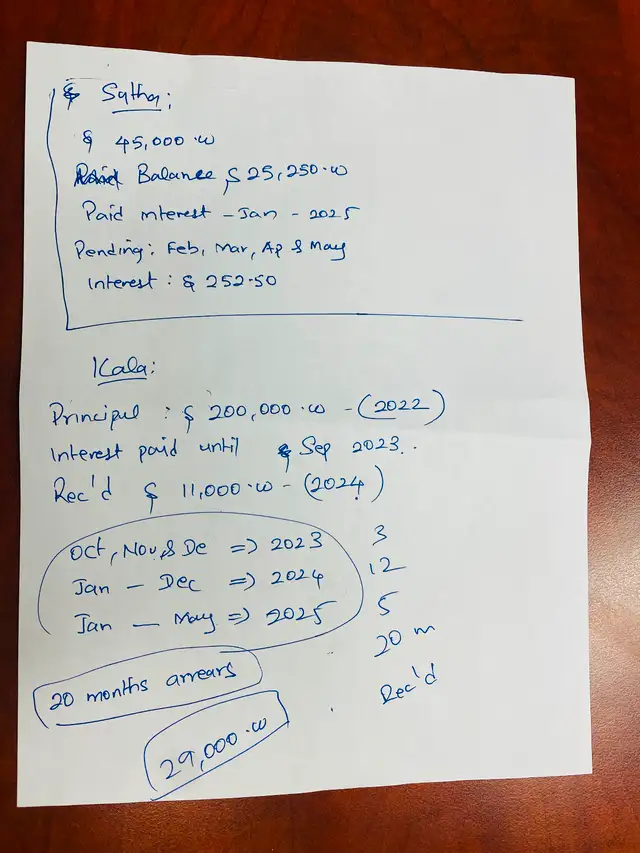 $ Satha:
$ 45,000.00
Balance $ 25,250.00
Paid interest - Jan - 2025
Pending: Feb, Mar, Ap & May
Interest: $ 252.50
Kala:
Principul : $ 200,000.00 - (2022)
Interest paid until Sep 2023..
Rec'd $ 11,000.00 - (2024)
Oct, Nov, & De => 2023 3
Jan - Dec => 2024 12
Jan - May => 2025 5
20 m
20 months arrears
Rec'd
29,000.00